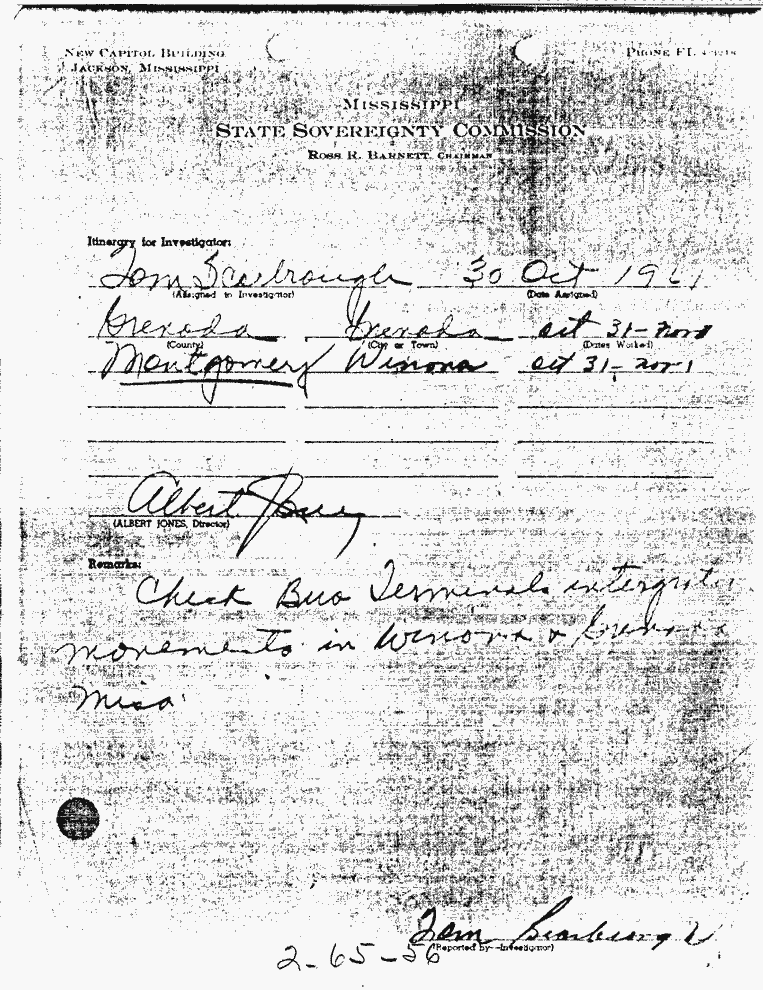 NEW CAPITOL BUILDING
JACKSON, MISSISSIPPI
PHONE FL
MISSISSIPPI
STATE SOVEREIGNTY COMMISSION
ROSS R. BARNETT, CHAIRMAN
Itinerary for Investigator:
Tom Scarbrough 30 Oct 1961
(Assigned to Investigator) (Date Assigned)
Grenada Grenada oct 31-nov 1
(County) (City or Town) (Dates Worked)
Montgomery Winona oct 31-nov 1
Albert Jones
(ALBERT JONES, Director)
Remarks:
Check Bus Terminals
movements in Winona & Grenada
Miss
Tom Scarbrough
(Reported by—Investigator)
2-65-56